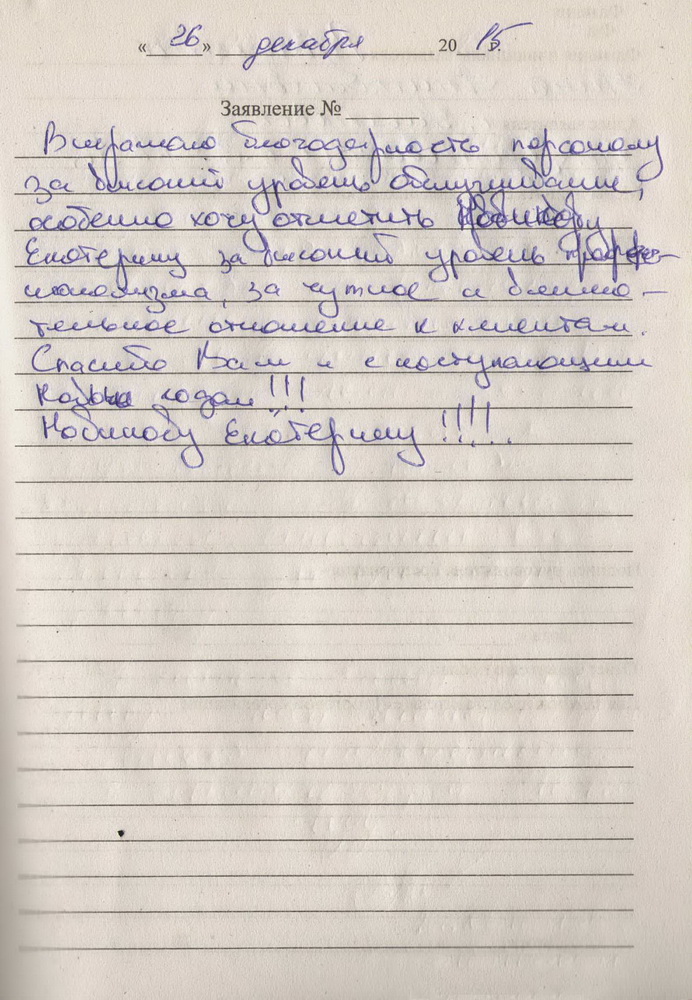 « 26 » декабря 20 15.
Заявление №
Выражаю благодарность персоналу
за высокий уровень обслуживания,
особенно хочу отметить Новикову
Екатерину за высокий уровень профес-
ионализма, за чуткое и внима-
тельное отношение к клиентам.
Спасибо Вам и с наступающим
Новым годом!!!
Новикову Екатерину !!!!..